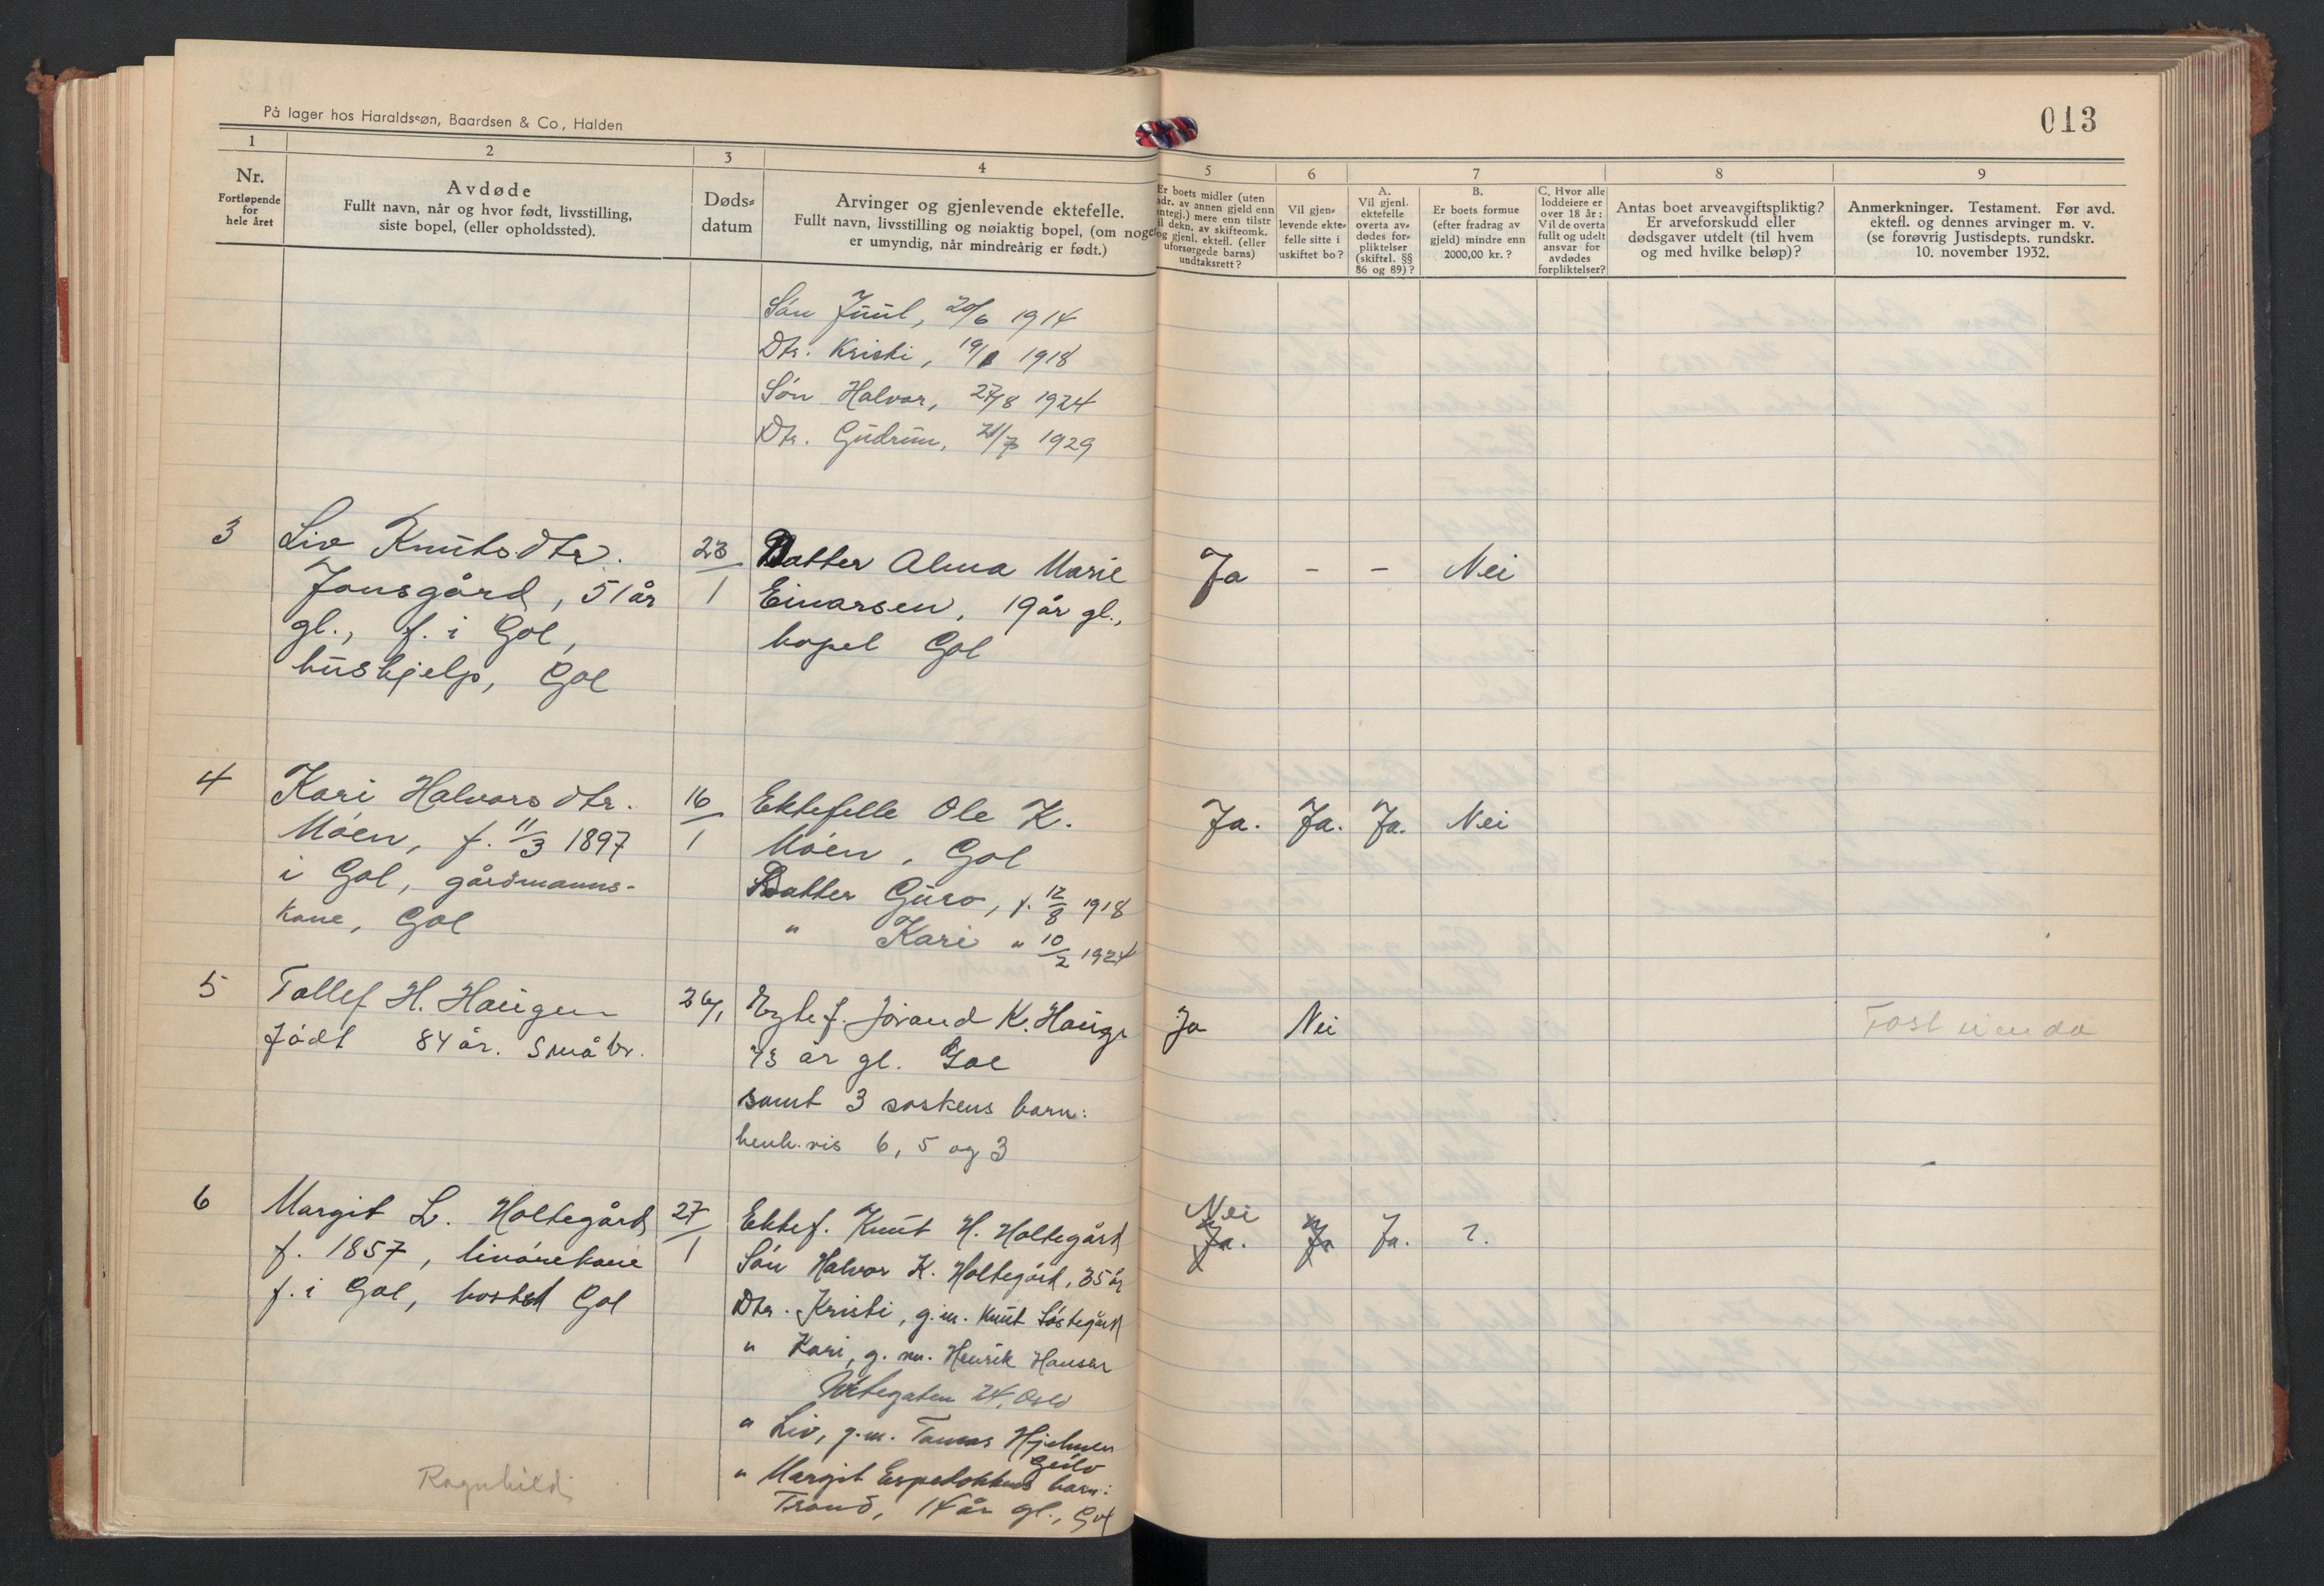 På lager hos Haraldssøn, Baardsen & Co, Halden
013
1 2 3 4 5 6 7 8 9
Nr.
Fortløpende
for
hele året
Avdøde
Fullt navn, når og hvor født, livsstilling,
siste bopel, (eller opholdssted).
Døds-
datum
Arvinger og gjenlevende ektefelle.
Fullt navn, livsstilling og nøiaktig bopel, (om noget
er umyndig, når mindreårig er født.)
Er boets midler (uten
adr. av annen gjeld enn
mntegj.) mere enn tilstr
il dekn. av skifteomk.
og gjenl. ektefl. (eller
uforsørgede barns)
undtaksrett?
Vil gjen-
levende ekte-
felle sitte i
uskiftet bo?
A.
Vil gjenl.
ektefelle
overta av-
dødes for-
pliktelser
(skiftel. §§
86 og 89)?
B.
Er boets formue
(efter fradrag av
gjeld) mindre enn
2000,00 kr.?
C. Hvor alle
loddeiere er
over 18 år:
Vil de overta
fullt og udelt
ansvar for
avdødes
forpliktelser?
Antas boet arveavgiftspliktig?
Er arveforskudd eller
dødsgaver utdelt (til hvem
og med hvilke beløp)?
Anmerkninger. Testament. Før avd.
ektefl. og dennes arvinger m. v.
(se forøvrig Justisdepts. rundskr.
10. november 1932.
Søn Juul, 20/6 1914
Dtr. Kristi, 19/1 1918
Søn Halvor, 27/8 1924
Dtr. Gudrun, 21/7 1929
3 Liv Knutsdtr. 23/1 Datter Alma Marie Ja - - Nei
Jonsgård, 51 år Einarsen, 19 år gl.,
gl., f. i Gol, bopel Gol
hushjelp, Gol
4 Kari Halvorsdtr. 16/1 Ektefelle Ole K. Ja. Ja. Ja. Nei
Móen, f. 11/3 1897 Móen, Gol
i Gol, gårdmanns- Datter Guro, f. 12/8 1918
kone, Gol " Kari " 10/2 1924
5 Tollef H. Haugen 26/1 Jorand K. Hauge Ja Nei
født 84 år. Småbr. 73 år gl. Gol
samt 3 søskens barn:
henh.vis 6, 5 og 3
6 Margit L. Holtegård 27/1 Ektef. Knut H. Holtegård Nei Ja. Ja Ja. ?.
f. 1857, livørekone Søn Halvor K. Holtegård, 35 år
f. i Gol, bosted Gol Dtr. Kristi, g.m. Knut
" Kari, g. m. Henrik Hansen
24, Oslo
" Liv, g.m. Tomas Hjelmen
Geilo
" Margit Espelokkens barn:
Ragnhild Trond, 14 år gl., Gol